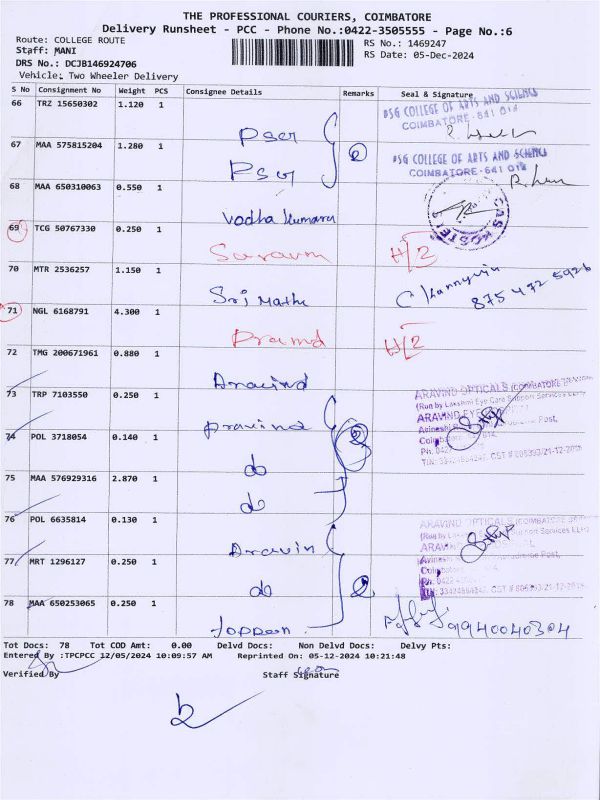 THE PROFESSIONAL COURIERS, COIMBATORE
Delivery Runsheet - PCC - Phone No.:0422-3505555 - Page No.:6
Route: COLLEGE ROUTE
RS No.: 1469247
Staff: MANI
RS Date: 05-Dec-2024
DRS No.: DCJB146924706
Vehicle: Two Wheeler Delivery
S No Consignment No Weight PCS Consignee Details Remarks Seal & Signature
66 TRZ 15650302 1.120 1 PSG PSG COLLEGE OF ARTS AND SCIENCE
COIMBATORE - 641 014
67 MAA 575815204 1.280 1 PSG 2 PSG COLLEGE OF ARTS AND SCIENCE
COIMBATORE - 641 014
68 MAA 650310063 0.550 1 Vadha Kumaran
69 TCG 50767330 0.250 1 Saravm H/2
70 MTR 2536257 1.150 1 Sri Mathi 875 472 5926
71 NGL 6168791 4.300 1 Pramod H/2
72 TMG 200671961 0.880 1 Aravind
73 TRP 7103550 0.250 1 Aravind ARAVIND OPTICALS (COIMBATORE
(Run by Lakshmi Eye Care Support Services LLP)
74 POL 3718054 0.140 1 do 2
75 MAA 576929316 2.870 1 do
76 POL 6635814 0.130 1 Aravin ARAVIND OPTICALS (COIMBATORE
77 MRT 1296127 0.250 1 do 2
78 MAA 650253065 0.250 1 Joppeen 9940040304
Tot Docs: 78 Tot COD Amt: 0.00 Delvd Docs: Non Delvd Docs: Delvy Pts:
Entered By :TPCPCC 12/05/2024 10:09:57 AM Reprinted On: 05-12-2024 10:21:48
Verified By Staff Signature